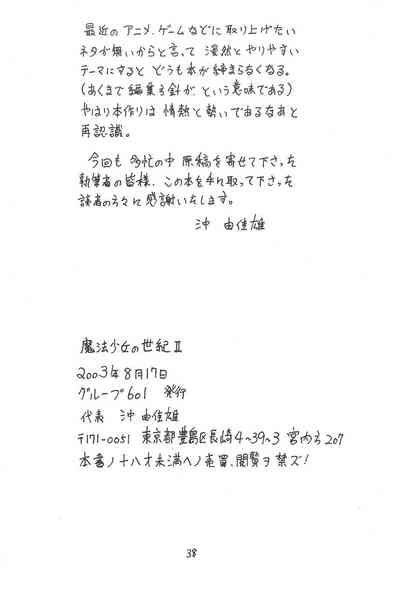 最近の アニメ、ゲームなどに 取り上げたい
ネタが無いからと言って 漫然と やりやすい
テーマにすると どうも本が締まらなくなる。
(あくまで 編集方針が という意味である)
やはり本作りは 情熱と勢いであるなあと
再認識。
今回も 多忙の中 原稿を寄せて下さった
執筆者の皆様、この本を手に取って下さった
読者の方々に 感謝いたします。
沖 由佳雄
魔法少女の世紀Ⅱ
2003年8月17日
グループ601 発行
代表 沖 由佳雄
〒171-0051 東京都豊島区長崎4-39-3 宮内方207
本書ノ十八才未満ヘノ売買、閲覧ヲ禁ズ!
38